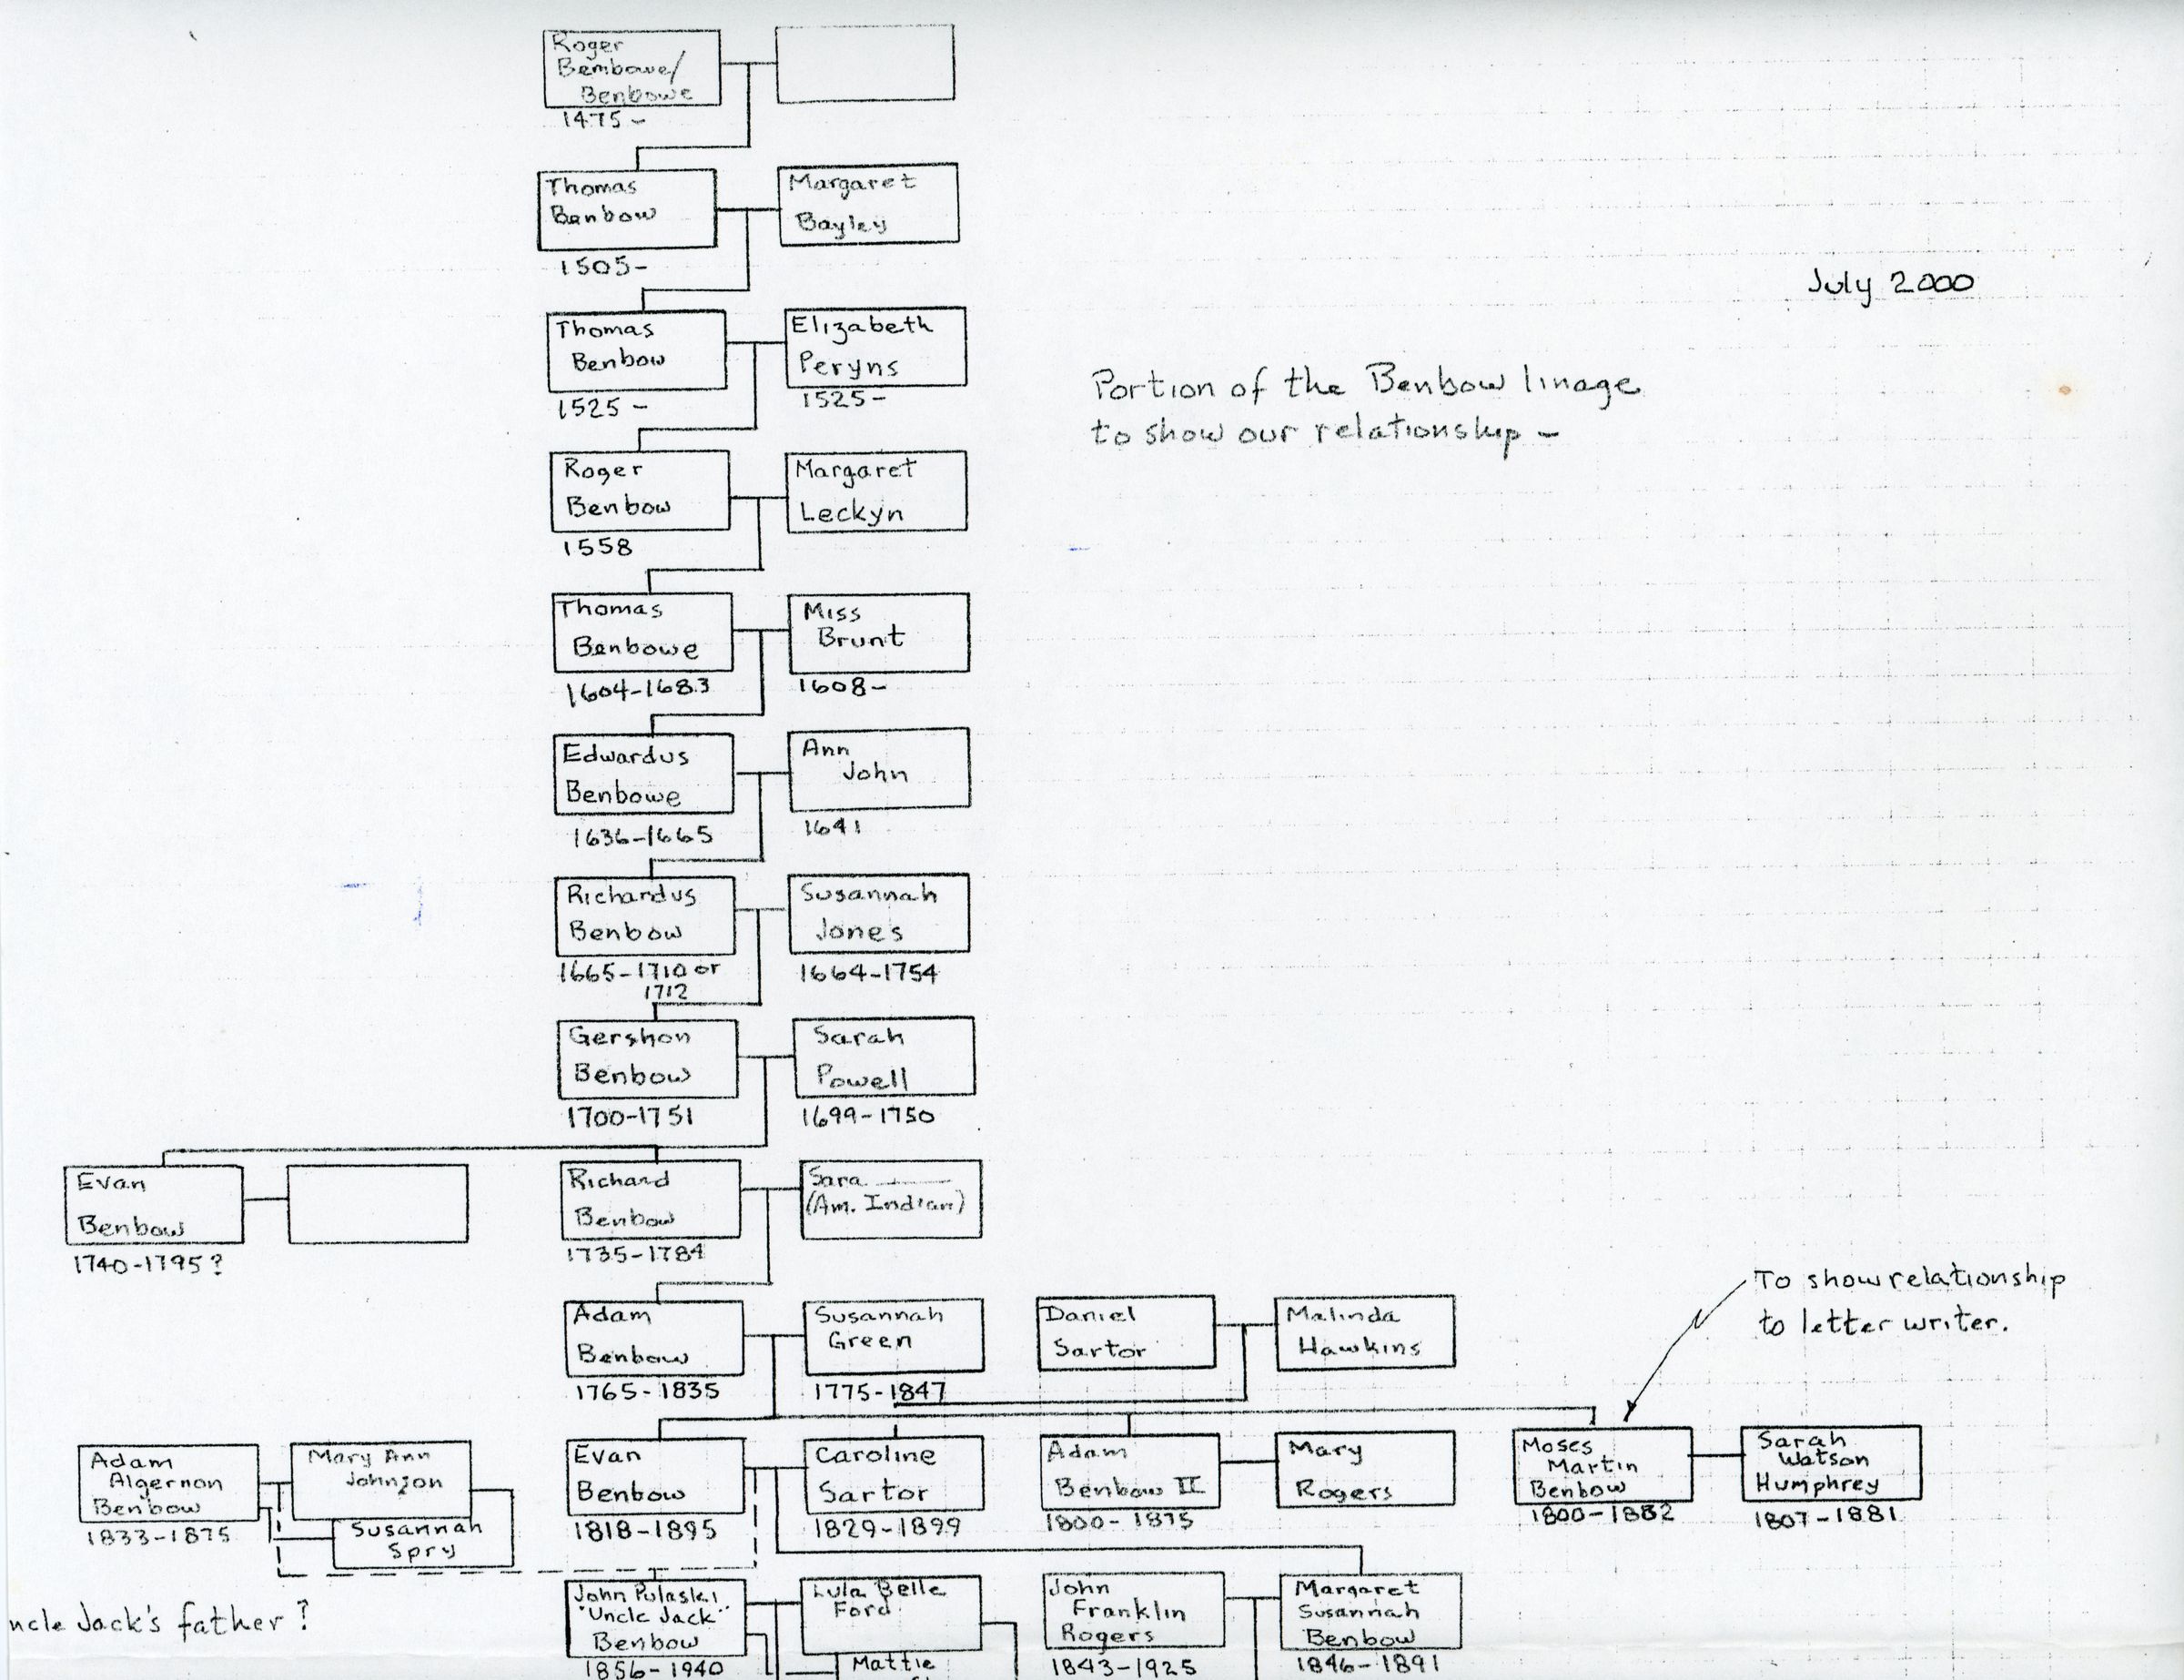 Roger
Bembowe/
Benbowe
1475 -
Thomas
Benbow
1505-
Margaret
Bayley
July 2000
Thomas
Benbow
1525 -
Elizabeth
Peryns
1525-
Portion of the Benbow linage
to show our relationship -
Roger
Benbow
1558
Margaret
Leckyn
Thomas
Benbowe
1604-1683
Miss
Brunt
1608-
Edwardus
Benbowe
1636-1665
Ann
John
1641
Richardus
Benbow
1665-1710 or
1712
Susannah
Jones
1664-1754
Gershon
Benbow
1700-1751
Sarah
Powell
1699-1750
Evan
Benbow
1740-1795?
Richard
Benbow
1735-1784
Sara
(Am. Indian)
To show relationship
to letter writer.
Adam
Benbow
1765-1835
Susannah
Green
1775-1847
Daniel
Sartor
Malinda
Hawkins
Adam
Algernon
Benbow
1833-1875
Mary Ann
Johnson
Susannah
Spry
Evan
Benbow
1818-1895
Caroline
Sartor
1829-1899
Adam
Benbow II
1800-1875
Mary
Rogers
Moses
Martin
Benbow
1800-1882
Sarah
Watson
Humphrey
1807-1881
ncle Jack's father?
John Pulaski
"Uncle Jack"
Benbow
1856-1940
Lula Belle
Ford
Mattie
John
Franklin
Rogers
1843-1925
Margaret
Susannah
Benbow
1846-1891